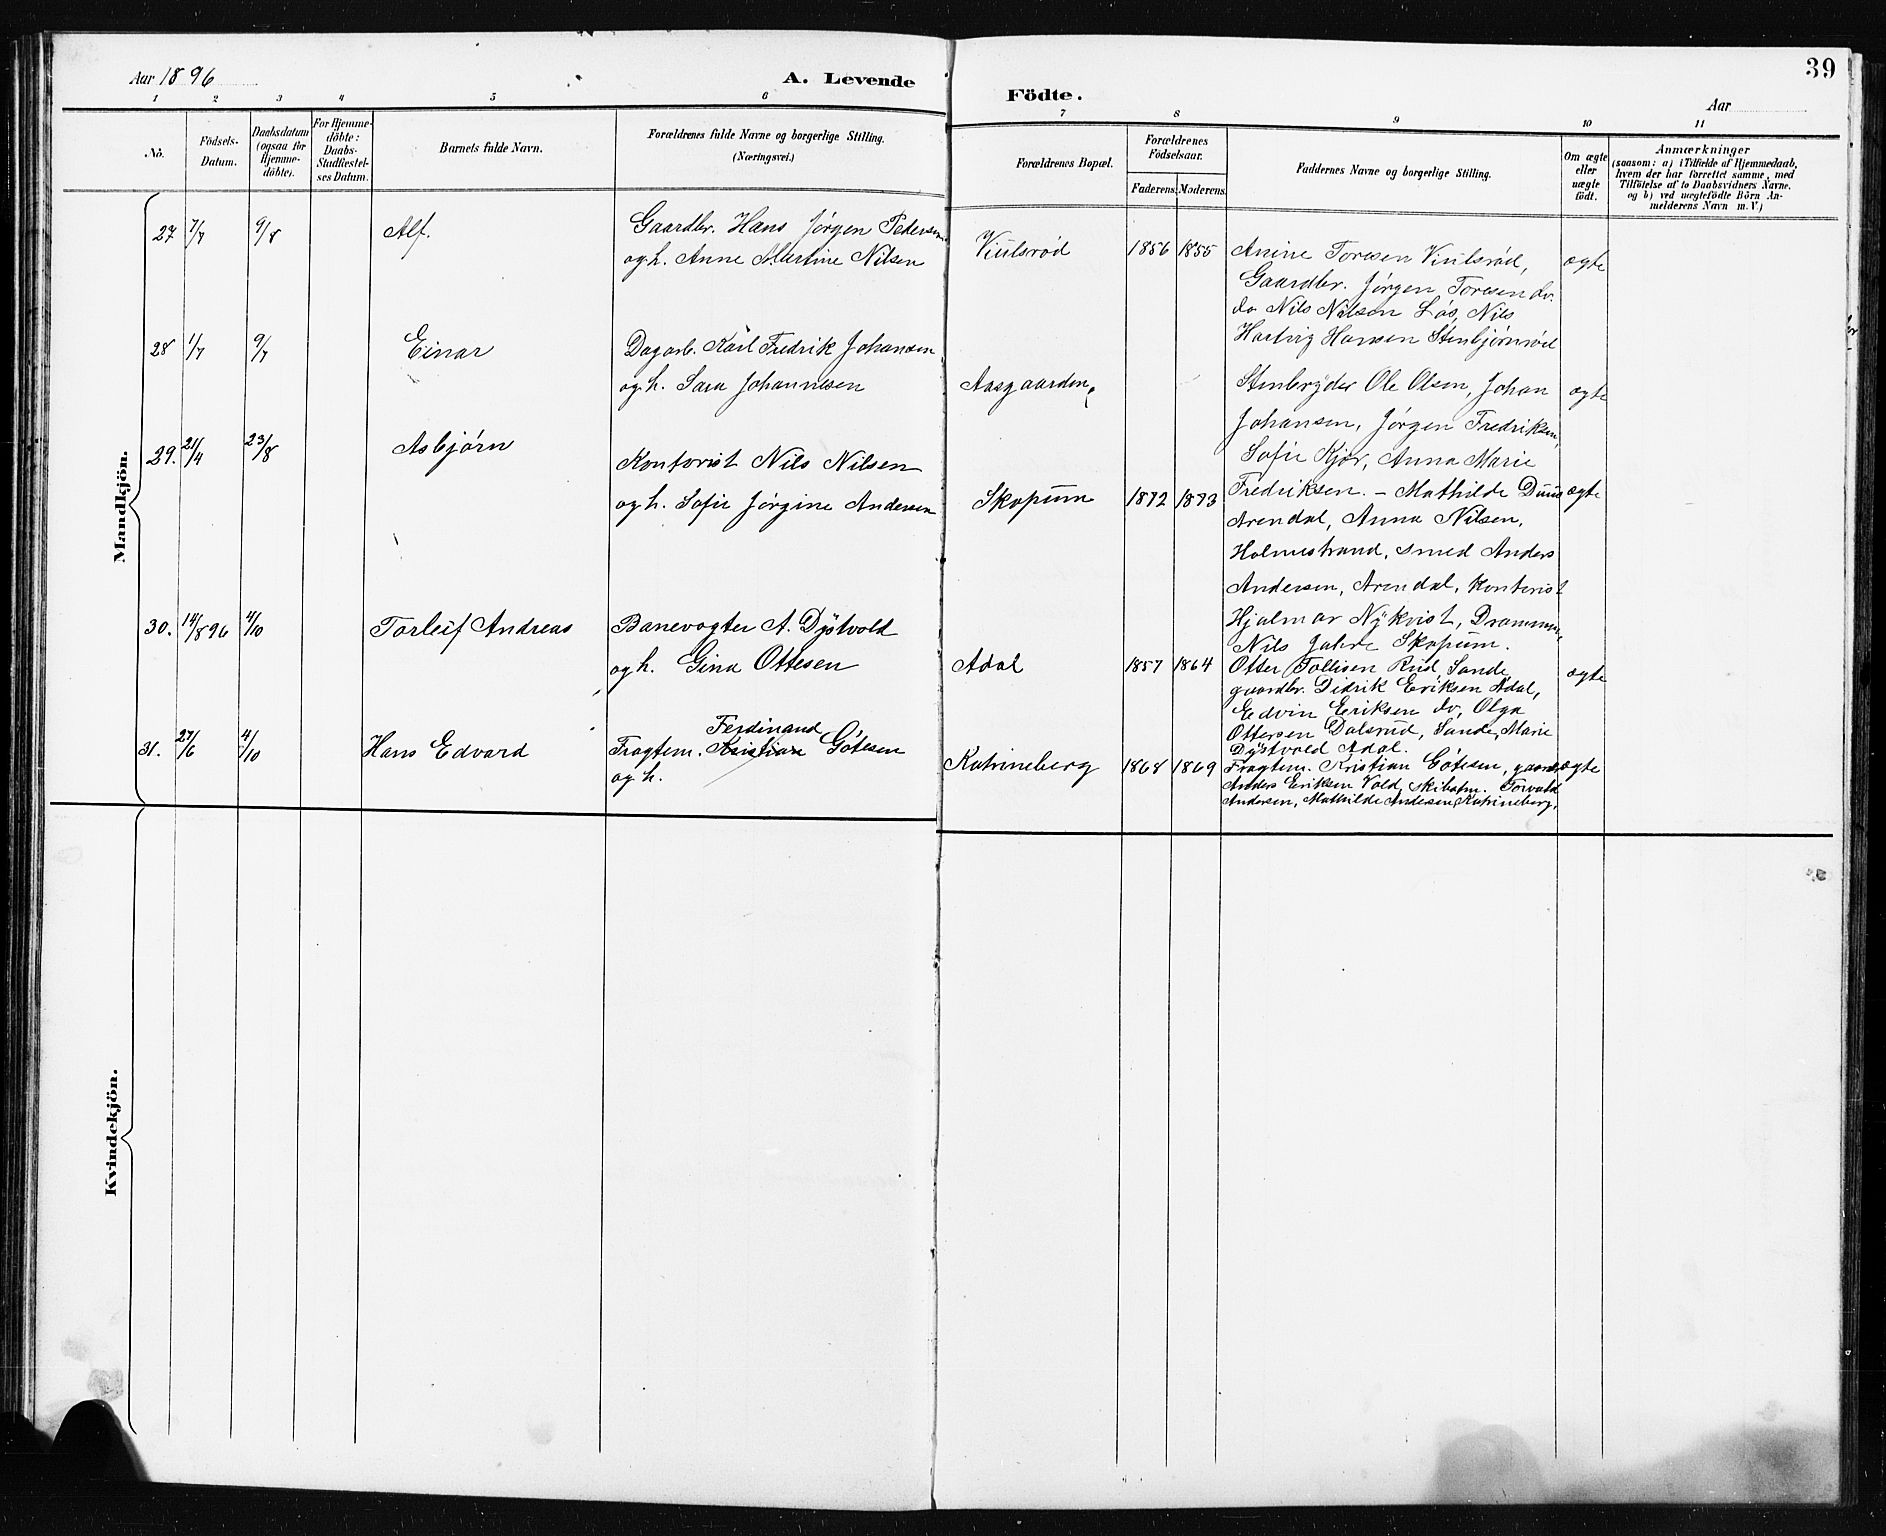 39
Aar 1896
A. Levende
Födte.
Aar
1 2 3 4 5 6 7 8 9 10 11
No.
Födsels-
Datum.
Daabsdatum
(ogsaa for
Hjemme-
döbte).
For Hjemme-
döbte:
Daabs-
Stadfæstel-
ses Datum.
Barnets fulde Navn.
Forældrenes fulde Navne og borgerlige Stilling.
(Næringsvei.)
Forældrenes Bopæl.
Forældrenes
Födselsaar.
Faderens. Moderens.
Faddernes Navne og borgerlige Stilling.
Om ægte
eller
uægte
födt.
Anmærkninger
(saasom: a) i Tilfælde af Hjemmedaab,
hvem der har forrettet samme, med
Tilföielse af to Daabsvidners Navne.
og b) ved uægtefödte Börn An-
melderens Navn m. V.)
Mandkjön.
27 7/7 9/8 Alf. Gaardbr. Hans Jørgen Pedersen
og h. Anne Martine Nilsen
Viulsrød 1856 1855
Anine Toresen Viulsrød,
Gaardbr. Jørgen Toresen do.
do Nils Nilsen Løs, Nils
Hartvig Hansen Stenbjørnrød
ægte
28 1/7 9/7 Einar Dagarb. Karl Fredrik Johansen
og h. Sara Johannesen
Aasgaarden
Stenbryder Ole Olsen, Johan
Johansen, Jørgen Fredriksen,
Sofie Kjør, Anna Marie
Fredriksen. –
ægte
29. 21/4 23/8 Asbjørn
Kontorist Nils Nilsen
og h. Sofie Jørgine Andersen
Skopum 1872 1873
Mathilde Duus
Arendal, Anna Nilsen,
Holmestrand, smed Anders
Andersen, Arendal, Kontorist
Hjalmar Nykvist, Drammen,
Nils Jahre Skopum.
ægte
30. 14/8 96 4/10 Torleif Andreas Banevogter A. Dystvold
og h. Gina Ottesen
Adal 1857 1864
Otter Tollisen Rud Sande,
gaardbr. Didrik Eriksen Adal,
Edvin Eriksen do, Olga
Ottersen Dalsrud, Sande, Marie
Dystvold Adal.
ægte
31. 27/6 4/10 Hans Edvard
Ferdinand
Fragtem. Kristian Götesen
og h.
Katrineberg 1868 1869
Fragtem. Kristian Götesen, gaardb.
Anders Eriksen Vold, skibstm. Torvald
Andersen, Mathilde Andersen, Katrineberg,
ægte
Kvindekjön.